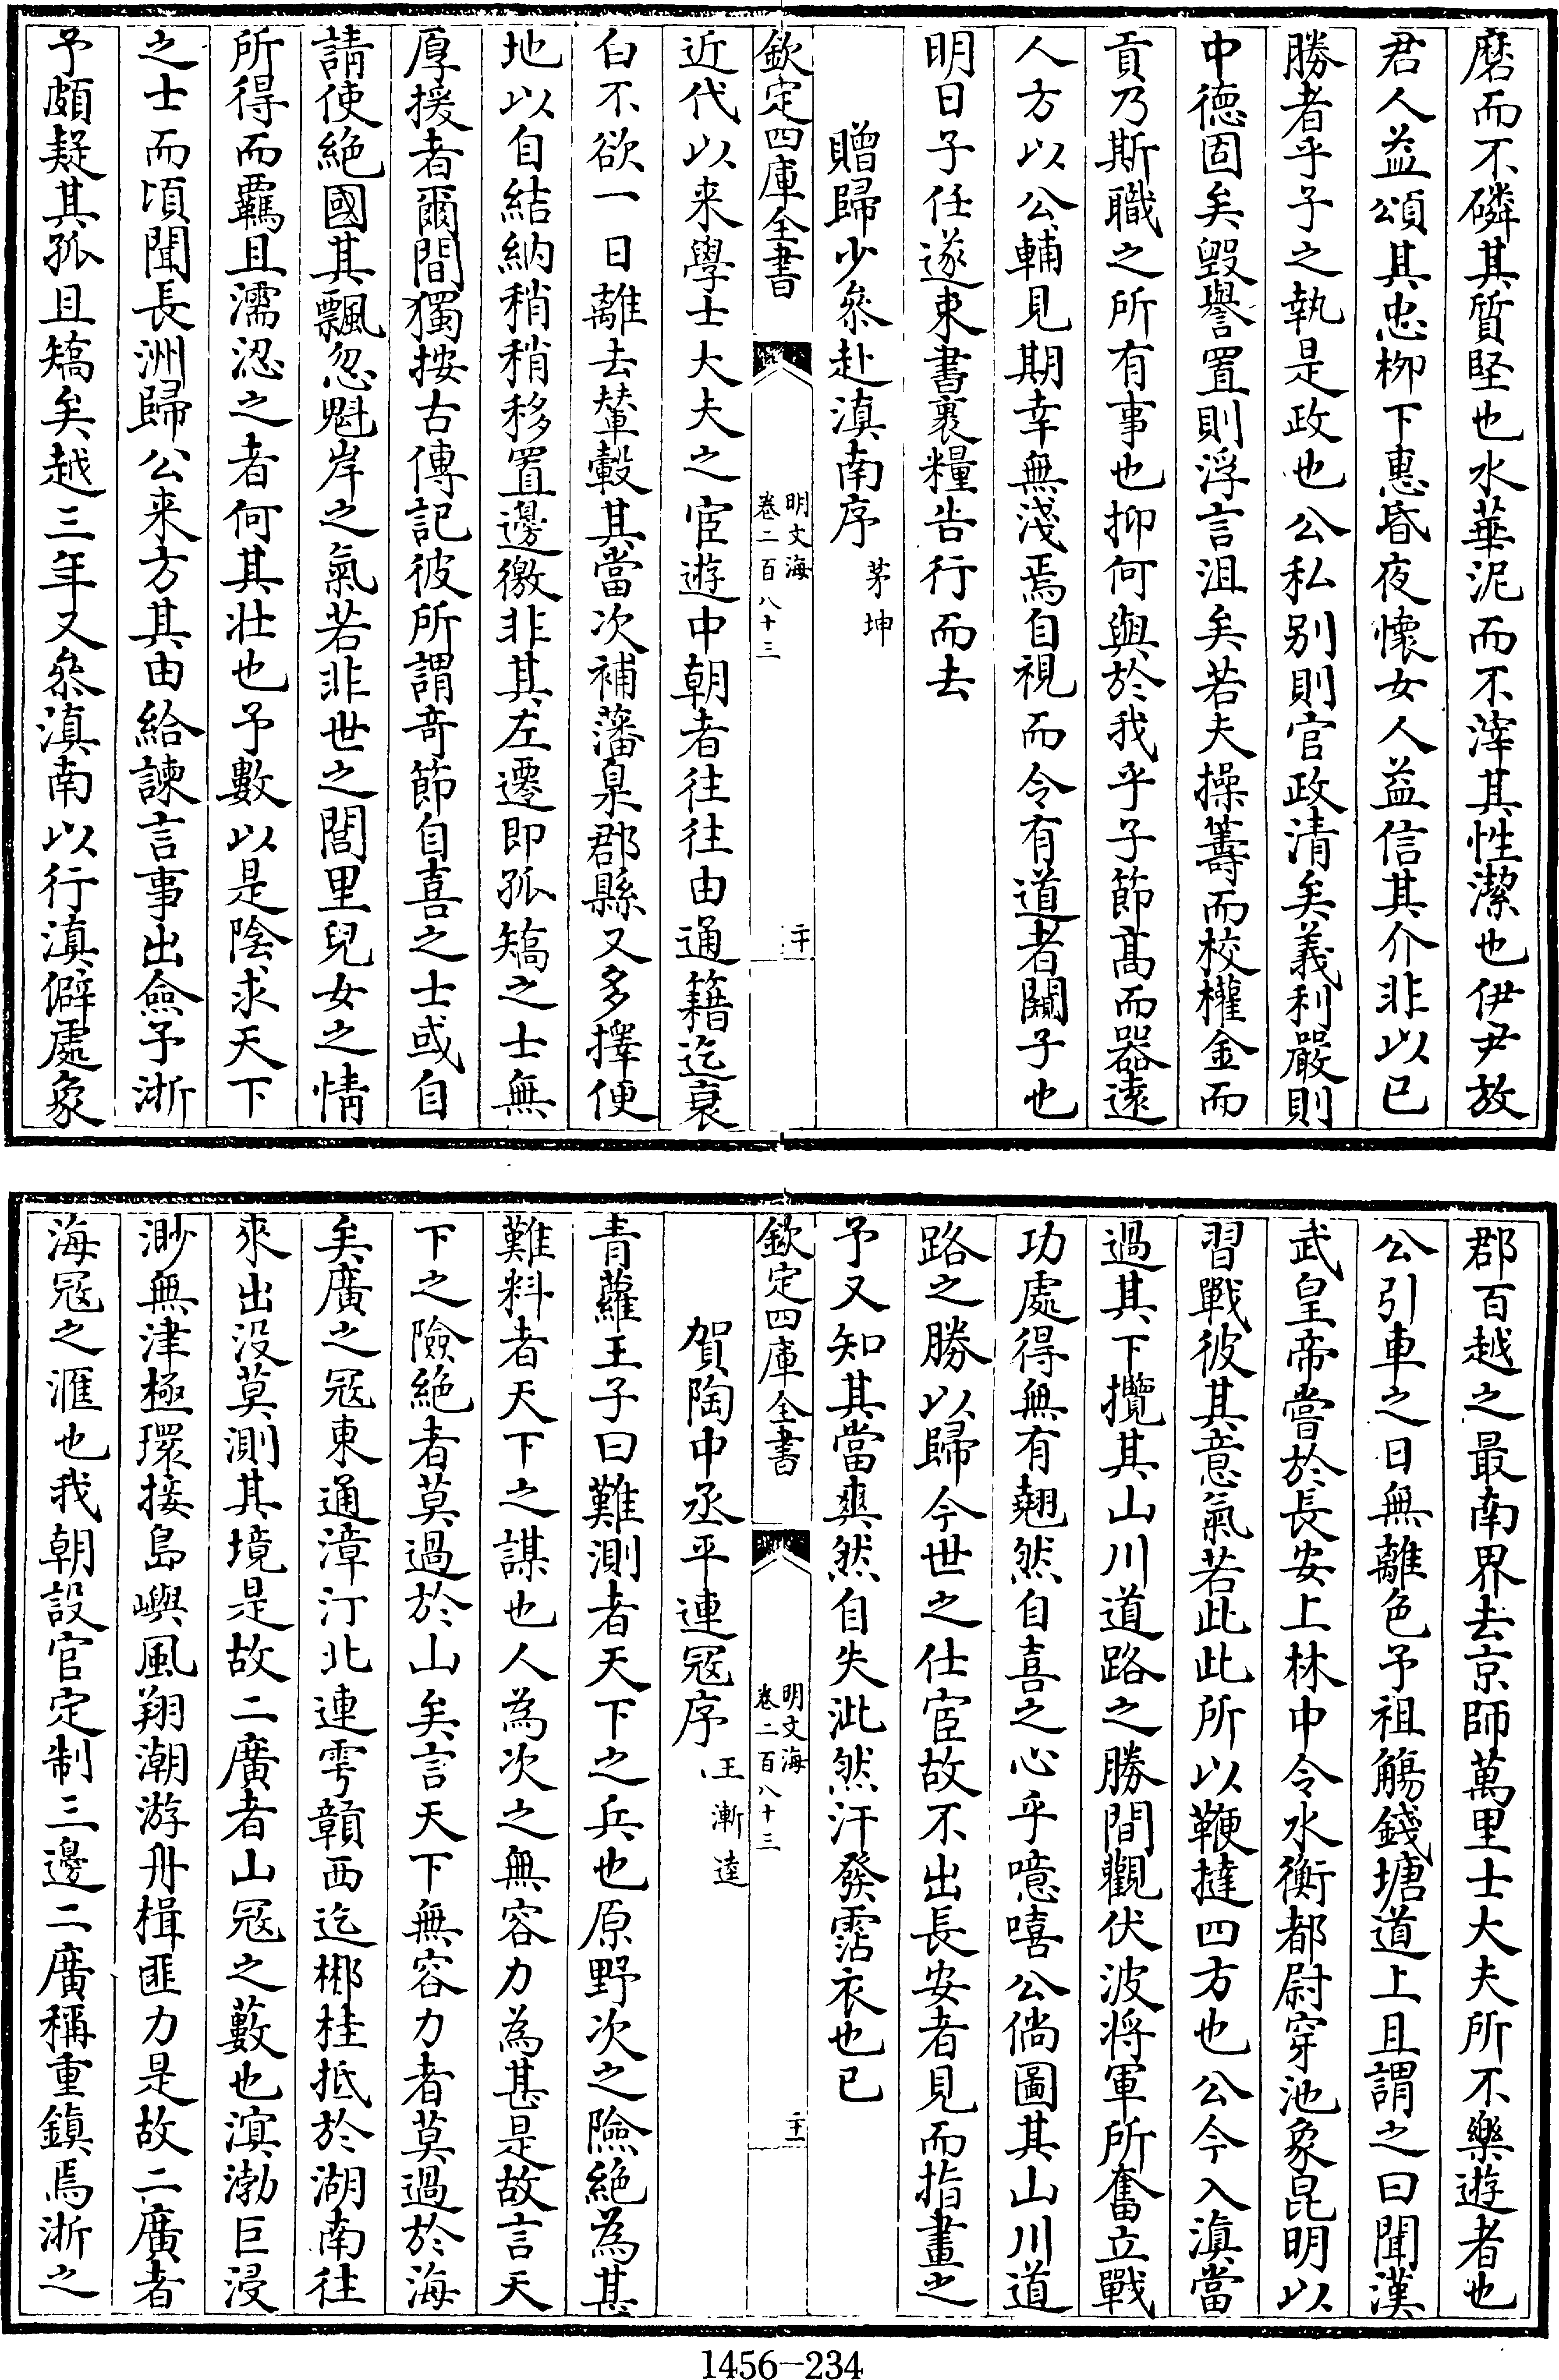 磨而不磷其質堅也水華泥而不滓其性潔也伊尹放
君人益頌其忠柳下惠昏夜懷女人益信其介非以已
勝者乎子之執是政也公私别則官政清矣義利嚴則
中德固矣毀譽置則浮言沮矣若夫操籌而校權金而
貢乃斯職之所有事也抑何與於我乎子節髙而器遠
人方以公輔見期幸無淺焉自視而令有道者闚子也
明日子任遂束書裹糧告行而去
贈歸少叅赴滇南序 茅坤
欽定四庫全書 明文海 卷二百八十三 二十
近代以来學士大夫之宦遊中朝者往往由通籍迄衰
白不欲一日離去輦轂其當次補藩臬郡縣又多擇便
地以自結納稍稍移置邊徼非其左遷即孤矯之士無
厚援者爾間獨按古傳記彼所謂竒節自喜之士或自
請使絶國其飄忽魁岸之氣若非世之閭里兒女之情
所得而羈且濡涊之者何其壯也予數以是陰求天下
之士而頃聞長洲歸公来方其由給諫言事出僉予浙
予頗疑其孤且矯矣越三年又叅滇南以行滇僻處象
郡百越之最南界去京師萬里士大夫所不樂遊者也
公引車之日無離色予祖觴錢塘道上且謂之曰聞漢
武皇帝嘗於長安上林中令水衡都尉穿池象昆明以
習戰彼其意氣若此此所以鞭撻四方也公今入滇當
過其下攬其山川道路之勝間觀伏波將軍所奮立戰
功處得無有翹然自喜之心乎噫嘻公倘圖其山川道
路之勝以歸今世之仕宦故不出長安者見而指畫之
予又知其當爽然自失泚然汗發霑衣也已
欽定四庫全書 明文海 卷二百八十三 二十一
賀陶中丞平連冦序 王漸逵
青蘿王子曰難測者天下之兵也原野次之險絶為甚
難料者天下之謀也人為次之無容力為甚是故言天
下之險絶者莫過於山矣言天下無容力者莫過於海
矣廣之冦東通漳汀北連雩贛西迄郴桂抵於湖南往
來出沒莫測其境是故二廣者山冦之藪也溟渤巨浸
渺無津極環接島嶼風翔潮游舟楫匪力是故二廣者
海冦之滙也我朝設官定制三邊二廣稱重鎮焉浙之
1456-234